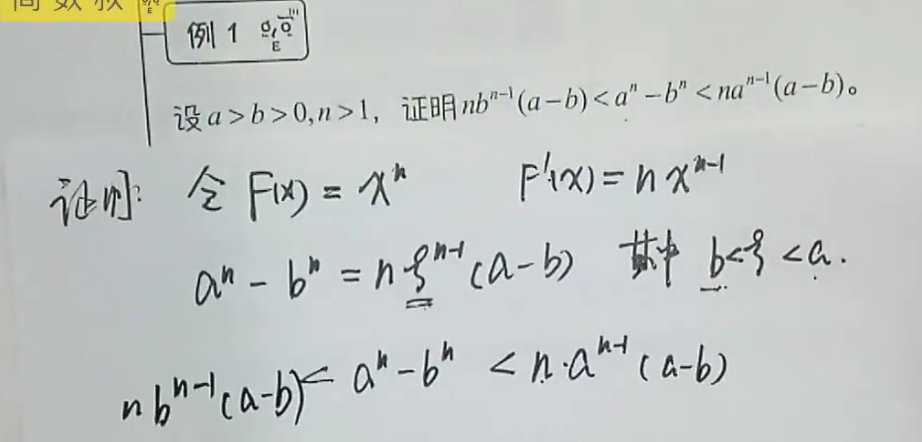 高数叔
例 1
设 a > b > 0, n > 1, 证明 nbⁿ⁻¹(a−b) < aⁿ − bⁿ < naⁿ⁻¹(a−b)。
证明: 令 F(x) = xⁿ F'(x) = n xⁿ⁻¹
aⁿ − bⁿ = n ξⁿ⁻¹ (a−b) 其中 b<ξ<a.
n bⁿ⁻¹(a−b) < aⁿ−bⁿ < n·aⁿ⁻¹(a−b)